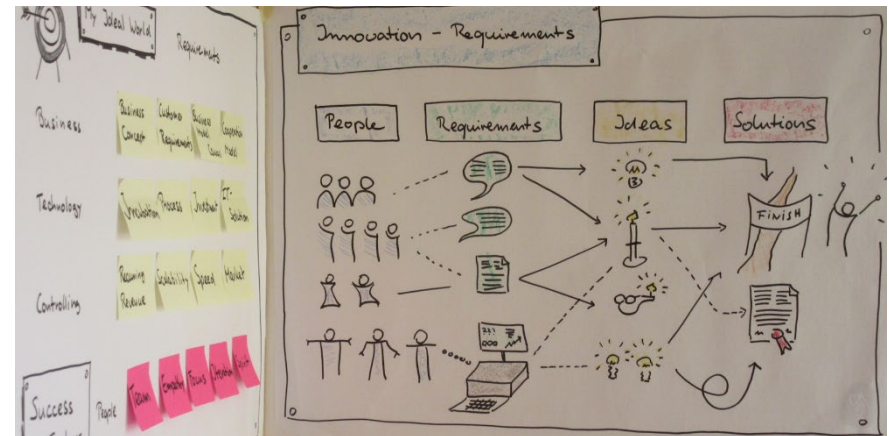 My Ideal World
Requirements
Business
Business
Concept
Customer
Requirements
Business
Model
Cooperation
Model
Technology
Incubation
Process
Investment
IT-
Solution
Controlling
Recurring
Revenue
Scalability
Speed
Market
Success
People
Team
Empathy
Focus
Innovation - Requirements
People
Requirements
Ideas
Solutions
FINISH